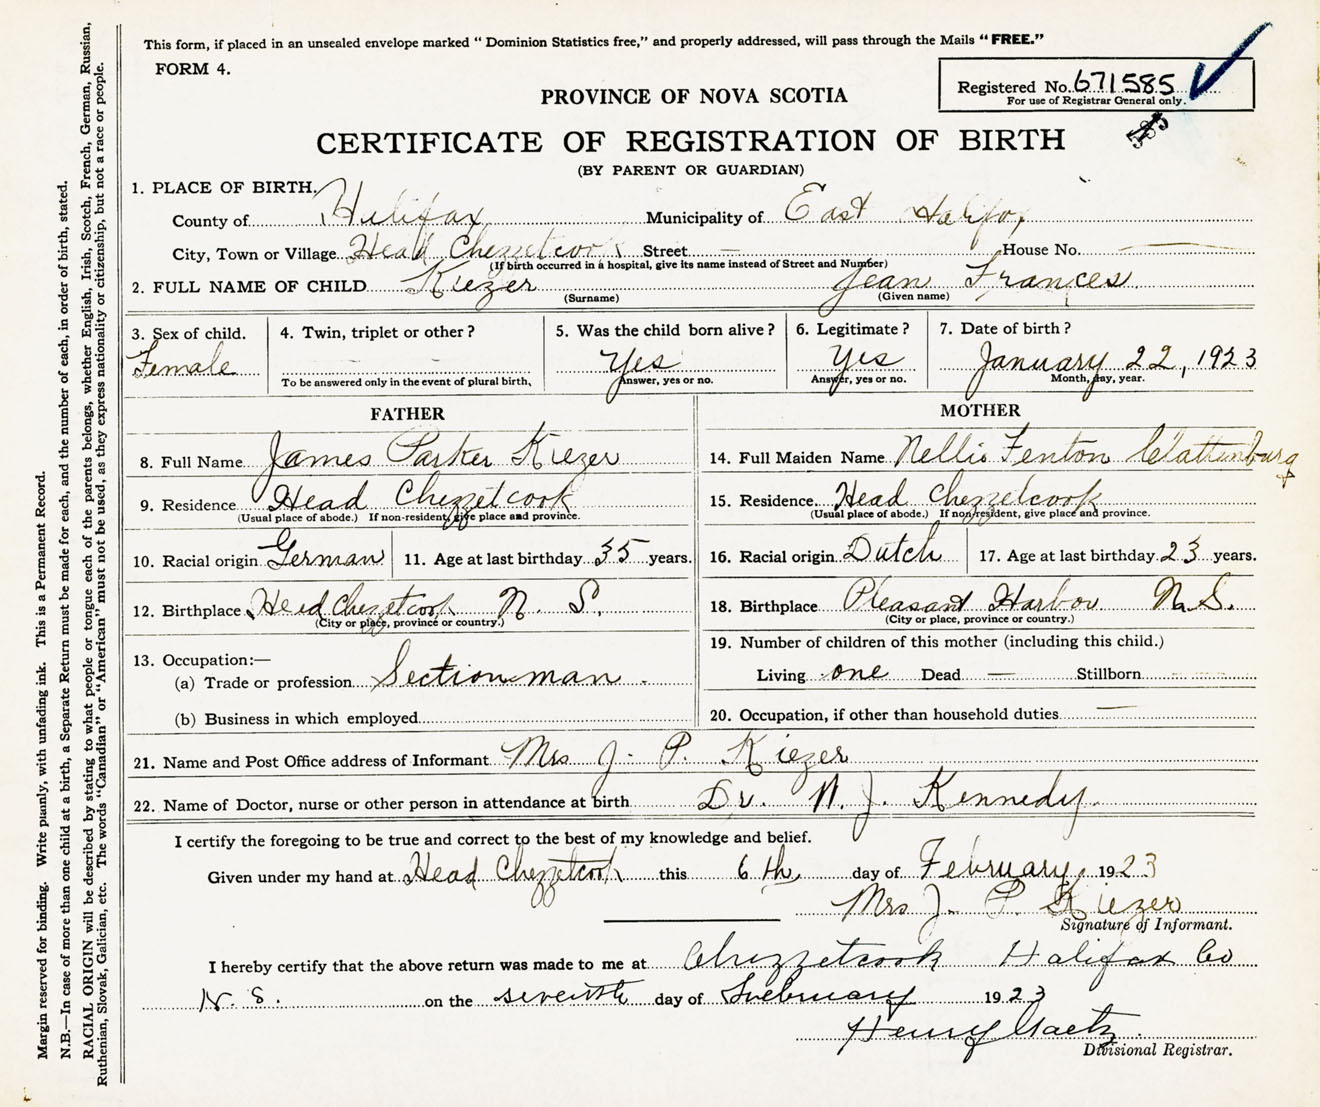 This form, if placed in an unsealed envelope marked “ Dominion Statistics free,” and properly addressed, will pass through the Mails “ FREE.”
FORM 4.
Registered No. 671585
For use of Registrar General only.
PROVINCE OF NOVA SCOTIA
585
CERTIFICATE OF REGISTRATION OF BIRTH
(BY PARENT OR GUARDIAN)
1. PLACE OF BIRTH.
County of Halifax Municipality of East Halifax
City, Town or Village Head Chezzetcook Street — House No. —
(If birth occurred in a hospital, give its name instead of Street and Number)
2. FULL NAME OF CHILD Kiezer Jean Frances
(Surname) (Given name)
3. Sex of child. 4. Twin, triplet or other ? 5. Was the child born alive ? 6. Legitimate ? 7. Date of birth ?
Female — — Yes Yes January 22, 1923
To be answered only in the event of plural birth, Answer, yes or no. Answer, yes or no. Month, day, year.
FATHER
8. Full Name James Parker Kiezer
9. Residence Head Chezzetcook
(Usual place of abode.) If non-resident, give place and province.
10. Racial origin German 11. Age at last birthday 35 years.
12. Birthplace Head Chezzetcook N. S.
(City or place, province or country.)
13. Occupation:—
(a) Trade or profession Sectionman
(b) Business in which employed
MOTHER
14. Full Maiden Name Nellie Fenton Clattenburg
15. Residence Head Chezzetcook
(Usual place of abode.) If non-resident, give place and province.
16. Racial origin Dutch 17. Age at last birthday 23 years.
18. Birthplace Pleasant Harbor N.S.
(City or place, province or country.)
19. Number of children of this mother (including this child.)
Living one Dead — Stillborn
20. Occupation, if other than household duties —
21. Name and Post Office address of Informant Mrs J. P. Kiezer
22. Name of Doctor, nurse or other person in attendance at birth Dr. N. J. Kennedy.
I certify the foregoing to be true and correct to the best of my knowledge and belief.
Given under my hand at Head Chezzetcook this 6th day of February, 1923
Mrs J. P. Kiezer
Signature of Informant.
I hereby certify that the above return was made to me at Chezzetcook Halifax Co
N. S. on the seventh day of February 1923
Henry Gaetz.
Divisional Registrar.
Margin reserved for binding. Write plainly, with unfading ink. This is a Permanent Record.
N.B.—In case of more than one child at a birth, a Separate Return must be made for each, and the number of each, in order of birth, stated.
RACIAL ORIGIN will be described by stating to what people or tongue each of the parents belongs, whether English, Irish, Scotch, French, German, Russian,
Ruthenian, Slovak, Galician, etc. The words “Canadian” or “American” must not be used, as they express nationality or citizenship, but not a race or people.